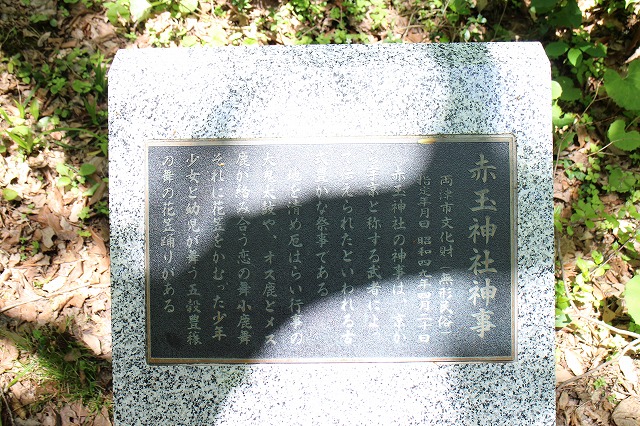 赤玉神社神事
両津市文化財(無形民俗)
指定年月日 昭和四九年四月二十日
赤玉神社の神事は、京か
と称する武者によ
えられたといわれる古
かな祭事である
を清め厄はらい行事の
大鬼太鼓や、オス鹿とメス
鹿が格み合う恋の舞小鹿舞
それに花笠をかむった少年
少女と幼児が舞う五穀豊穣
の舞の花笠踊りがある